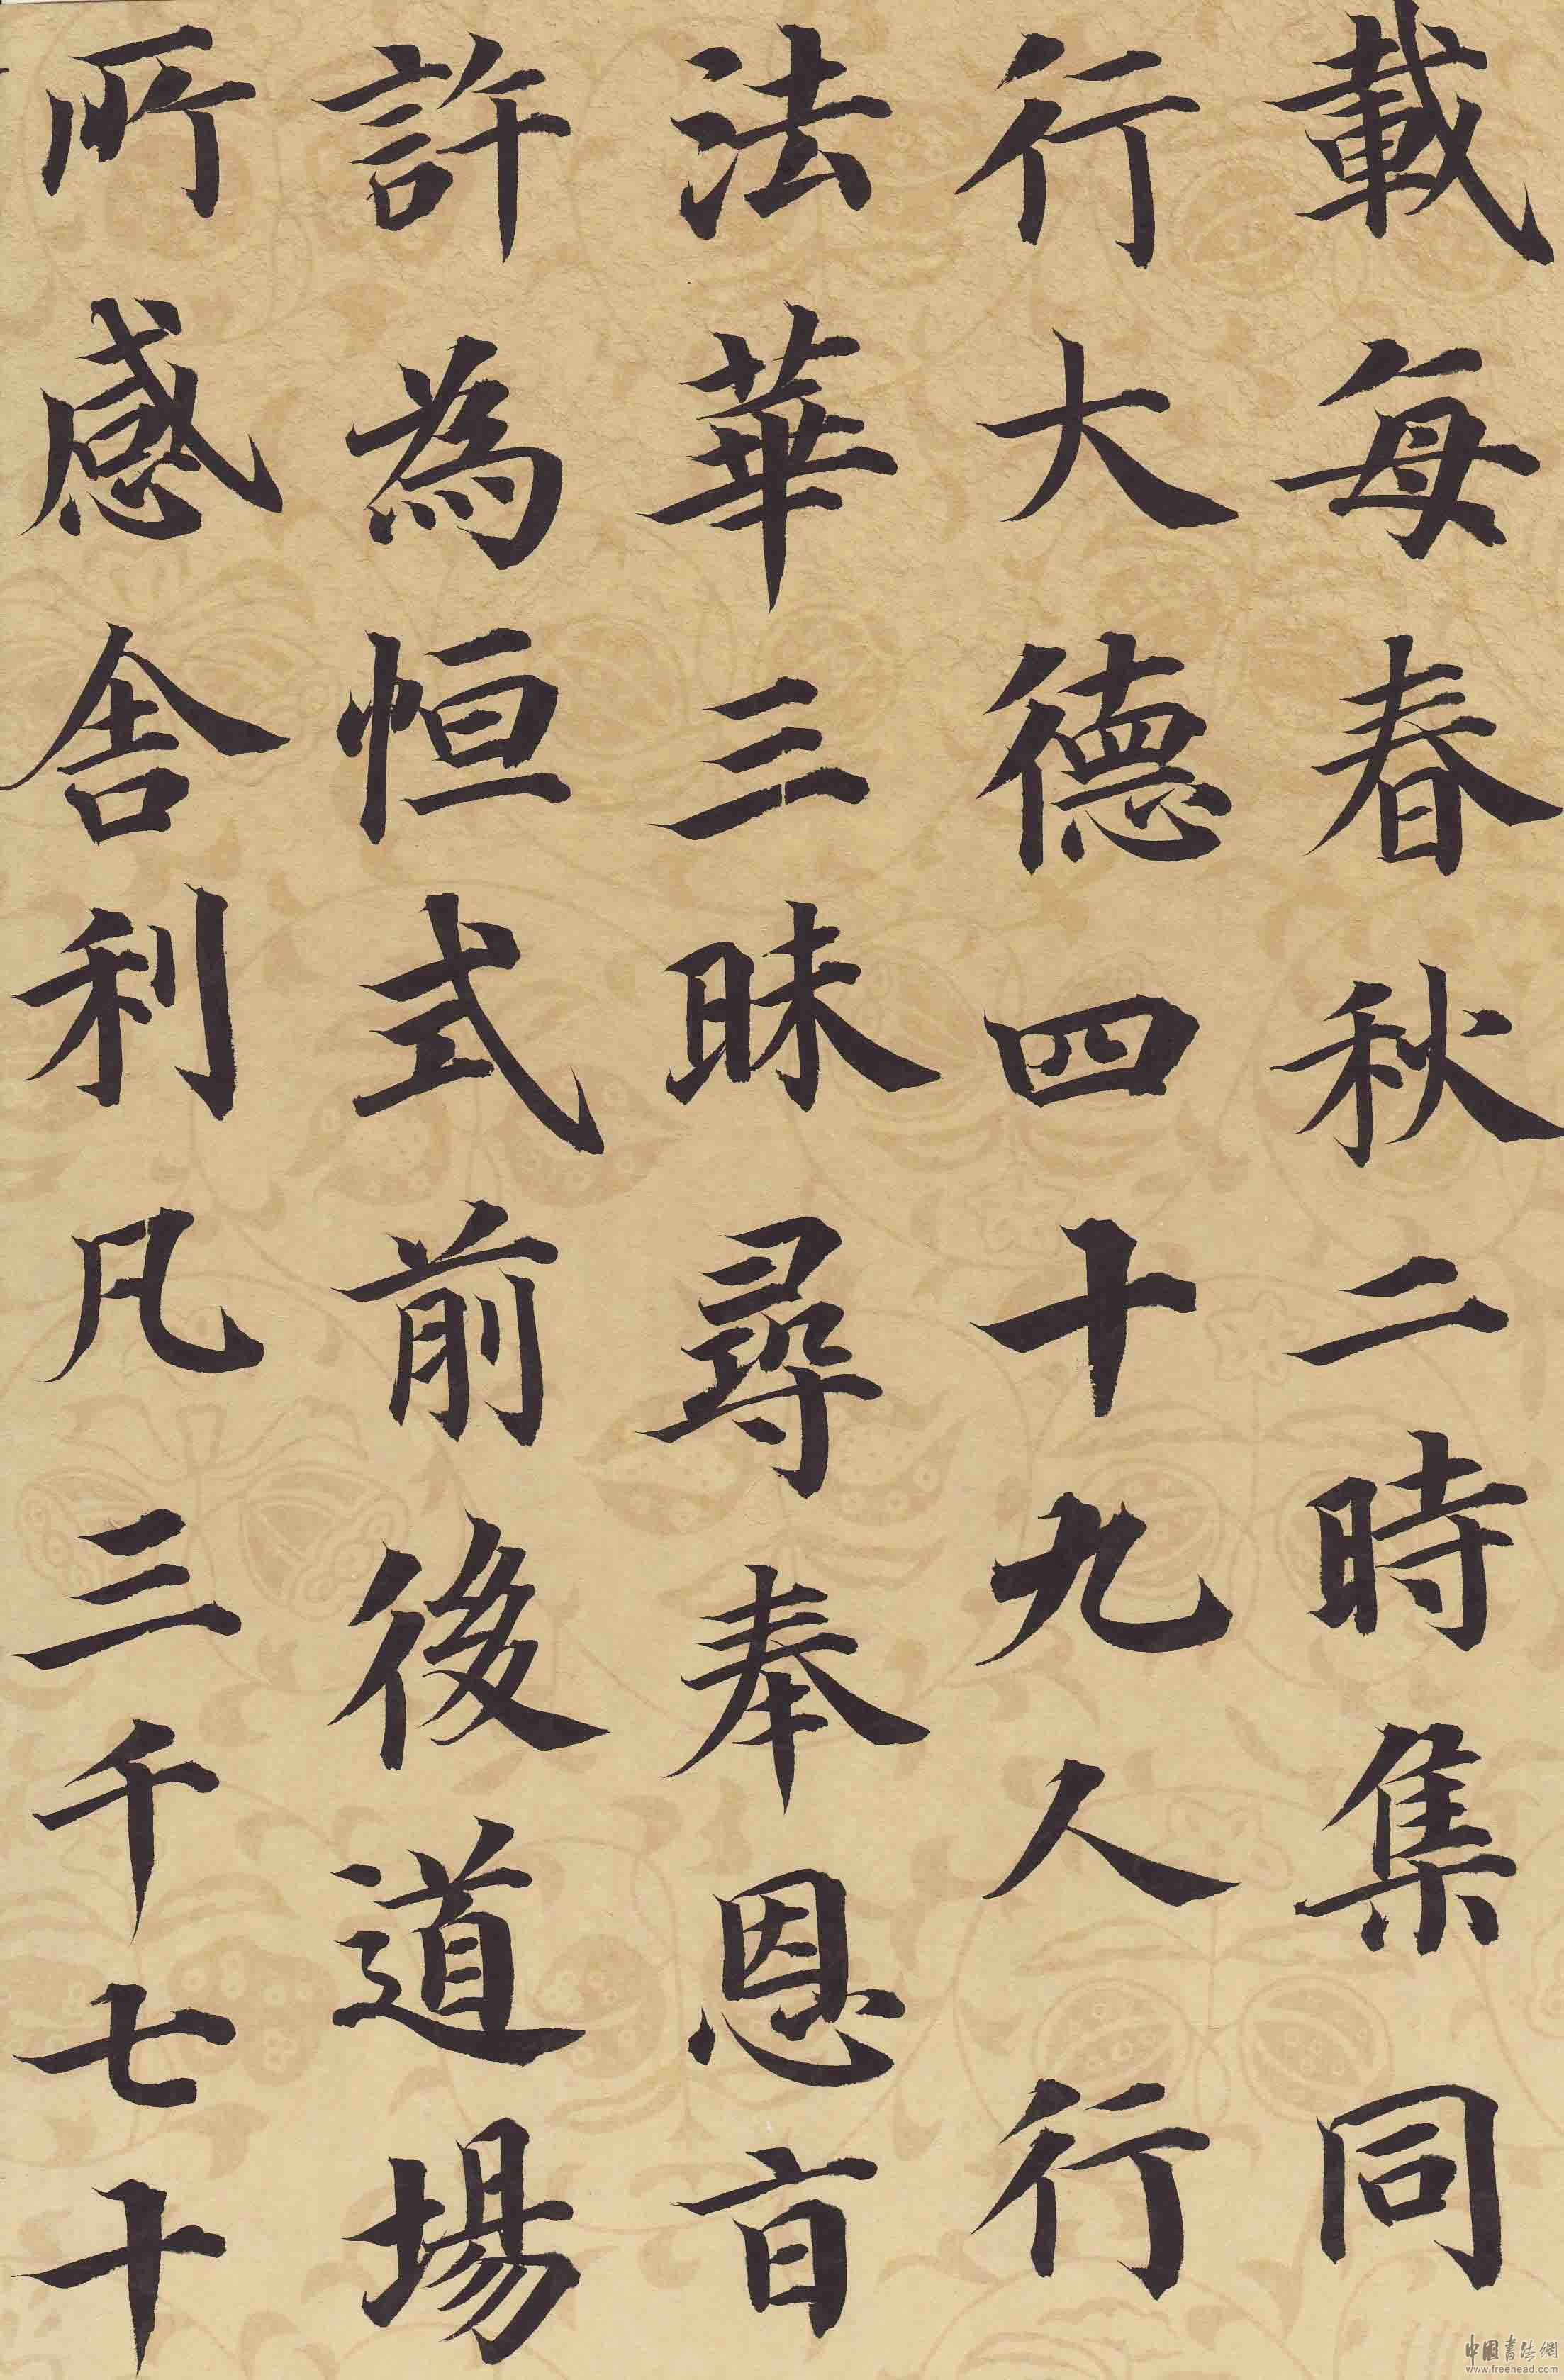 載每春秋二時集同
行大德四十九人行
法華三昧尋奉恩旨
許為恒式前後道場
所感舍利凡三千七十
中國書法網
www.freehead.com